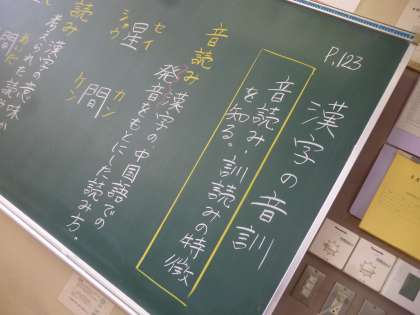 P.123
漢字の音訓
音読み・訓読みの特徴
を知る。
音読み
漢字の、中国語での
発音をもとにした読み方。
セイ
星
ショウ
カン
間
ケン
訓読み
漢字の意味